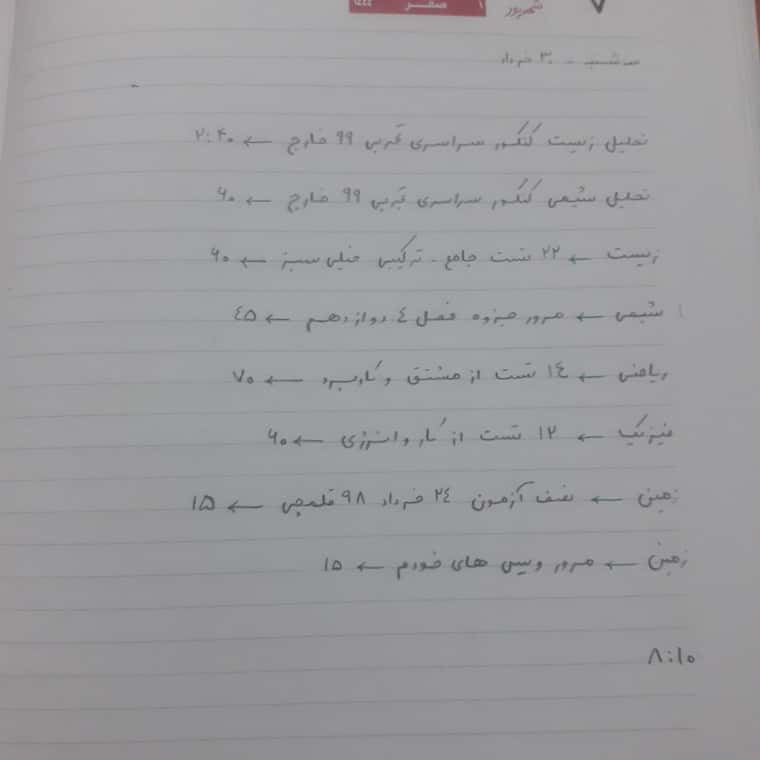 ۷ شهریور ۱ صفر ۱۴۴۴
سه شنبه - ۳۰ خرداد
تحلیل زیست کنکور سراسری تجربی ۹۹ خارج ← ۲:۴۰
تحلیل شیمی کنکور سراسری تجربی ۹۹ خارج ← ۶۰
زیست ← ۲۲ تست جامع - ترکیبی خیلی سبز ← ۶۰
شیمی ← مرور جزوه فصل ٤ دوازدهم ← ٤۵
ریاضی ← ۱٤ تست از مشتق و کاربرد ← ۷۰
فیزیک ← ۱۲ تست از کار و انرژی ← ۶۰
زمین ← نصف آزمون ۲٤ خرداد ۹۸ قلمچی ← ۱۵
زمین ← مرور ویس های خودم ← ۱۵
۸:۱۰